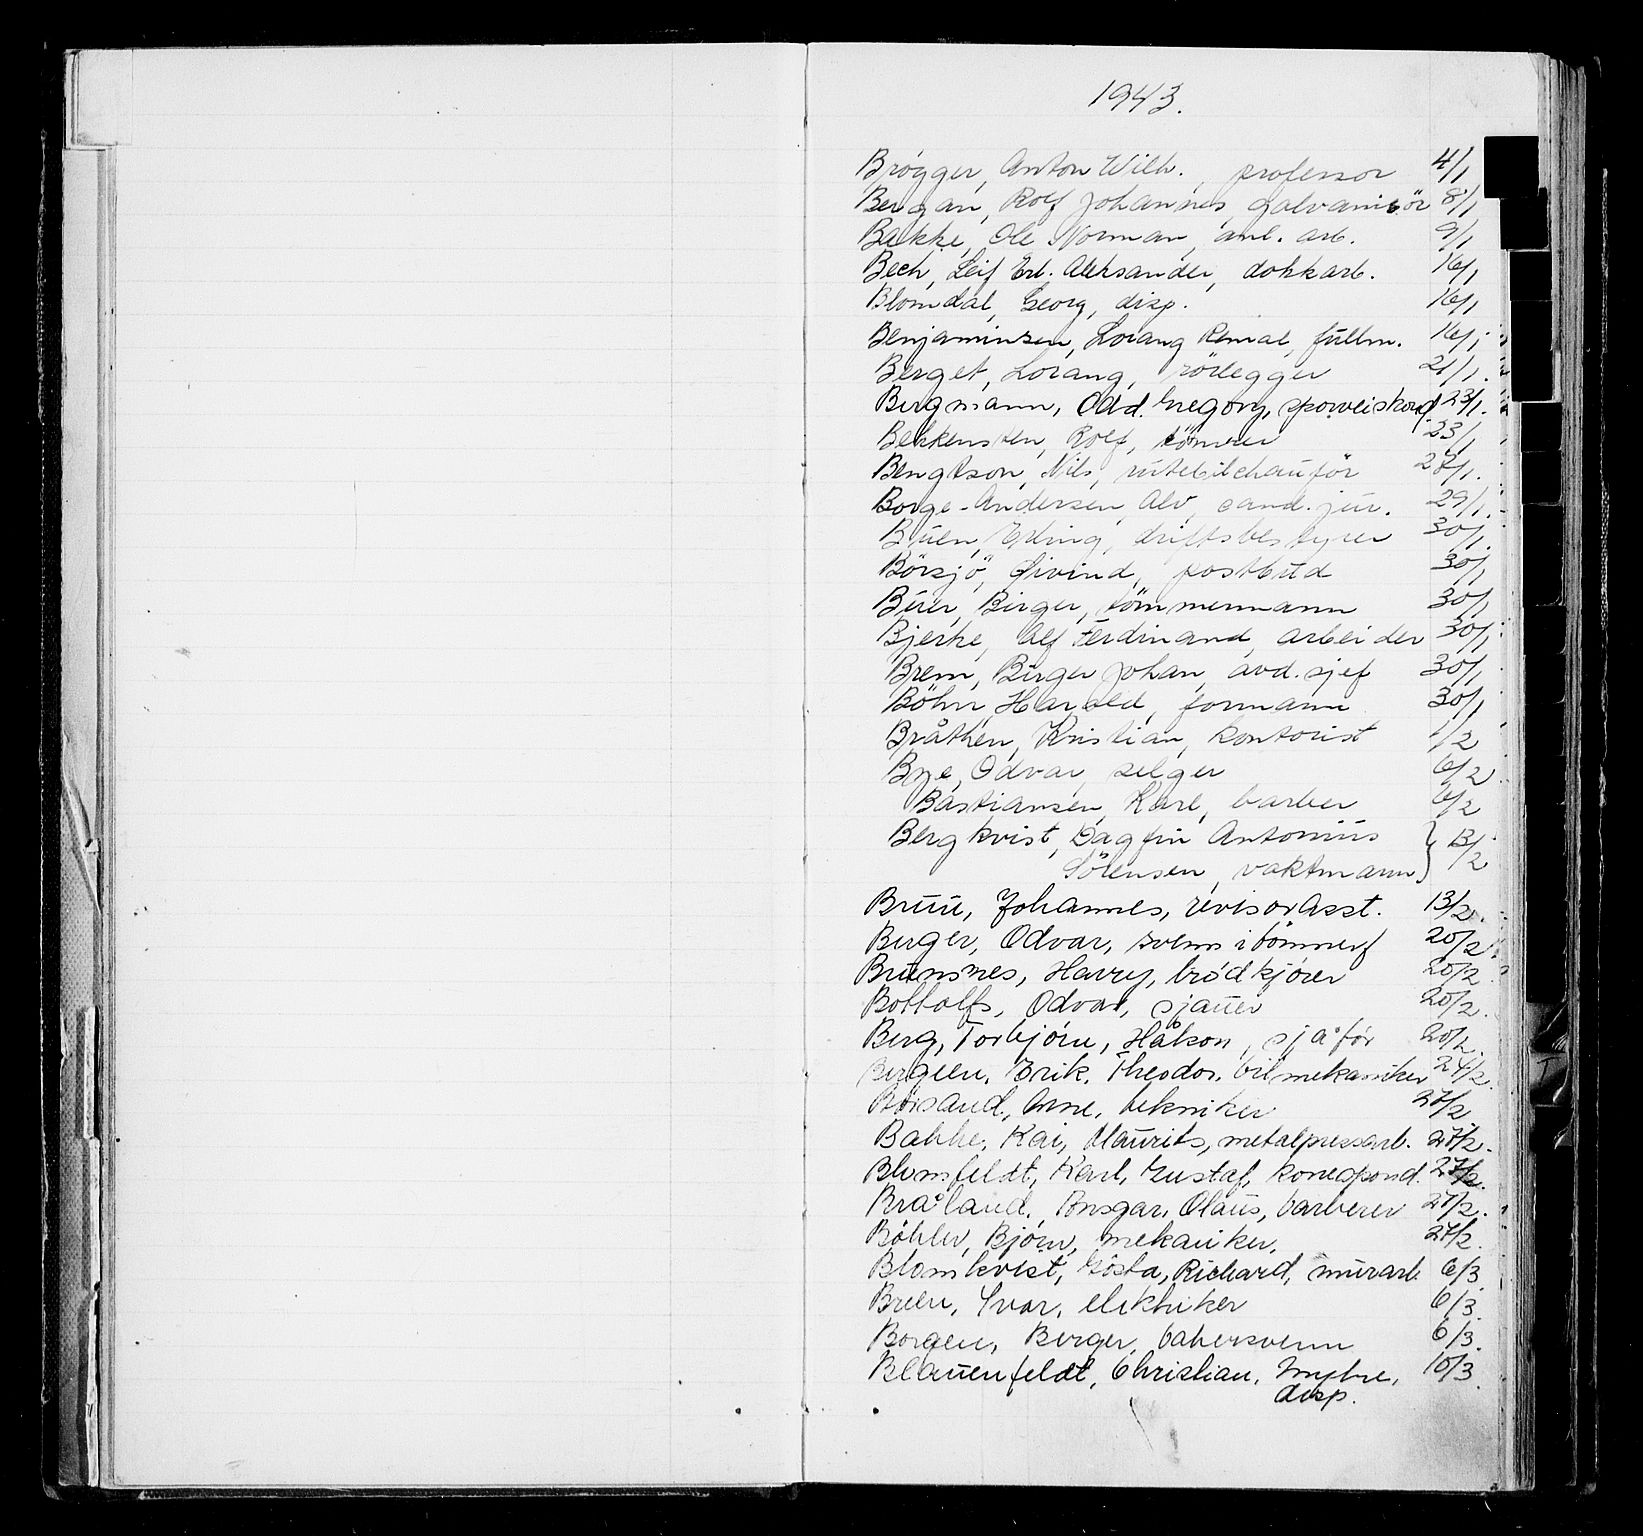 1943.
Brøgger, Anton Wilh., professor 4/1
Bergan, Rolf Johannes, galvanisör 8/1
Bakke, Ole Norman, anl. arb. 9/1
Bech, Leif Erl. Aleksander, dokkarb. 16/1
Blomdal, Georg, disp. 16/1
Benjaminsen, Lorang Remal, fullm. 16/1
Berget, Lorang, rörlegger 21/1.
Bergmann, Odd. Gregory, sporveiskond 23/1.
Bekkensten, Rolf, tömrer 23/1
Bengtson, Nils, rutebilchauför 28/1.
Borge-Andersen, Alv, cand. jur. 29/1.
Buen, Erling, driftsbestyrer 30/1.
Börsjö, Eivind, postbud 30/1
Buer, Birger, tömmermann 30/1
Bjerke, Alf Ferdinand, arbeider 30/1
Brem, Birger Johan, avd. sjef 30/1
Böhn, Harald, formann 30/1
Bråthen, Kristian, kontorist 1/2
Bye, Odvar, selger 6/2
Bastiansen, Karl, barber 6/2
Bergkvist, Dagfin Antonius } 13/2
Sörensen, vaktmann
Bruu, Johannes, revisorasst. 13/2.
Berger, Odvar, svenn i tömmerf 20/2
Brunsnes, Harry, brødkjører 20/2
Bottolfs, Odvar, sjauer 20/2.
Berg, Torbjørn, Håkon, sjåfør 20/2.
Bergeen. Erik. Theodor. bilmekaniker 24/2.
Böisand, Arne, tekniker 27/2
Bakke, Kai, Maurits, metalpressarb. 27/2.
Blomsfeldt, Karl, Gustaf, korrespond. 27/2.
Bråland, Ansgar, Olaus, barberer 27/2.
Böhler, Bjørn, mekaniker, 27/2.
Blomkvist, Gösta, Richard, murarb. 6/3
Breen, Ivar, elektriker 6/3.
Borgen, Berger, bakersvenn 6/3.
Blauenfeldt, Christian, Myhre, 10/3.
disp.